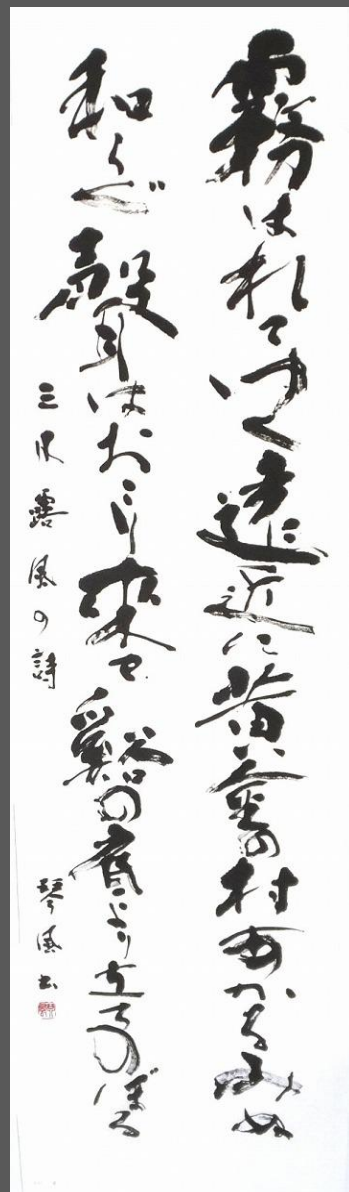 霧はれてゆく遠近に黄金の村あかるみぬ
和らぐ聲はおこり來て谿の底より立ちのぼる
三木露風の詩
琴風書